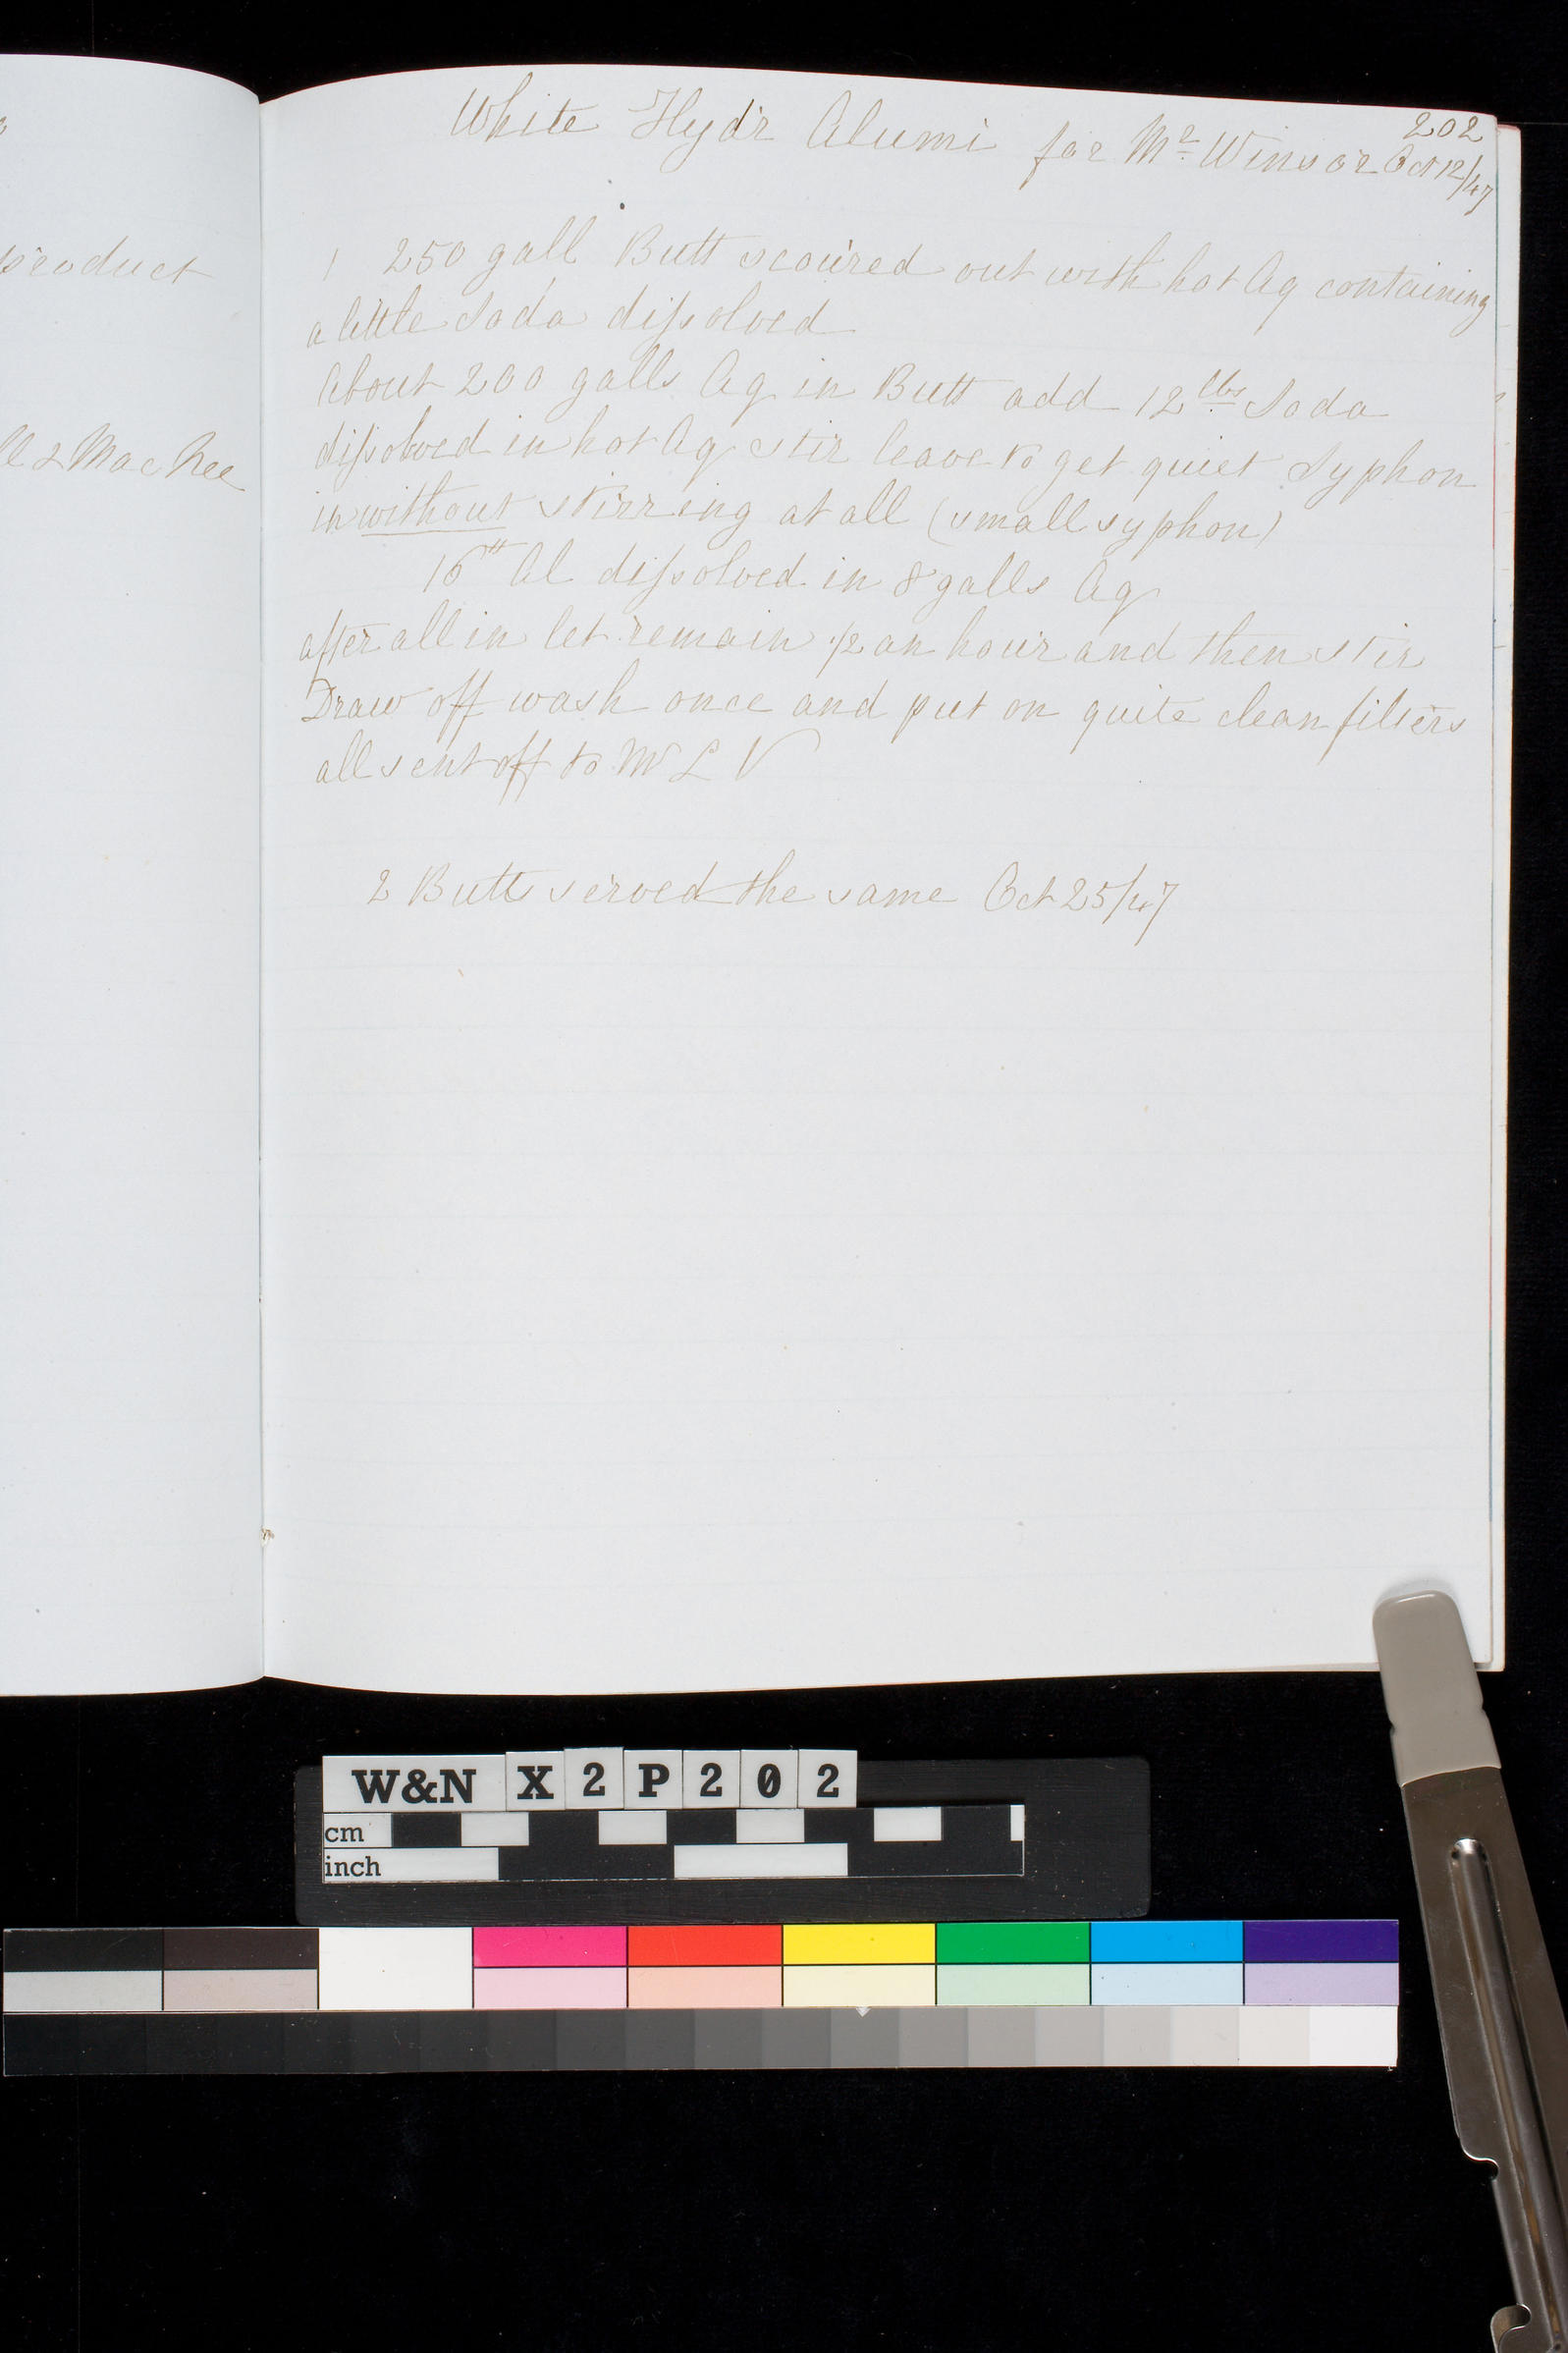 product
l 2 MacNee
202
White Hydr Alumi for Mr Winsor Oct 12/47
1 250 gall Butt scoured out with hot Aq containing
a little Soda dissolved
About 200 galls Aq in Butt add 12 lbs Soda
dissolved in hot Aq stir leave to get quiet Syphon
in without stirring at all (small syphon)
16 lb Al dissolved in 8 galls Aq
after all in let remain 1/2 an hour and then stir
Draw off wash once and put on quite clean filters
all sent off to
2 Butts served the same Oct 25/47
W&N X2P202
cm
inch